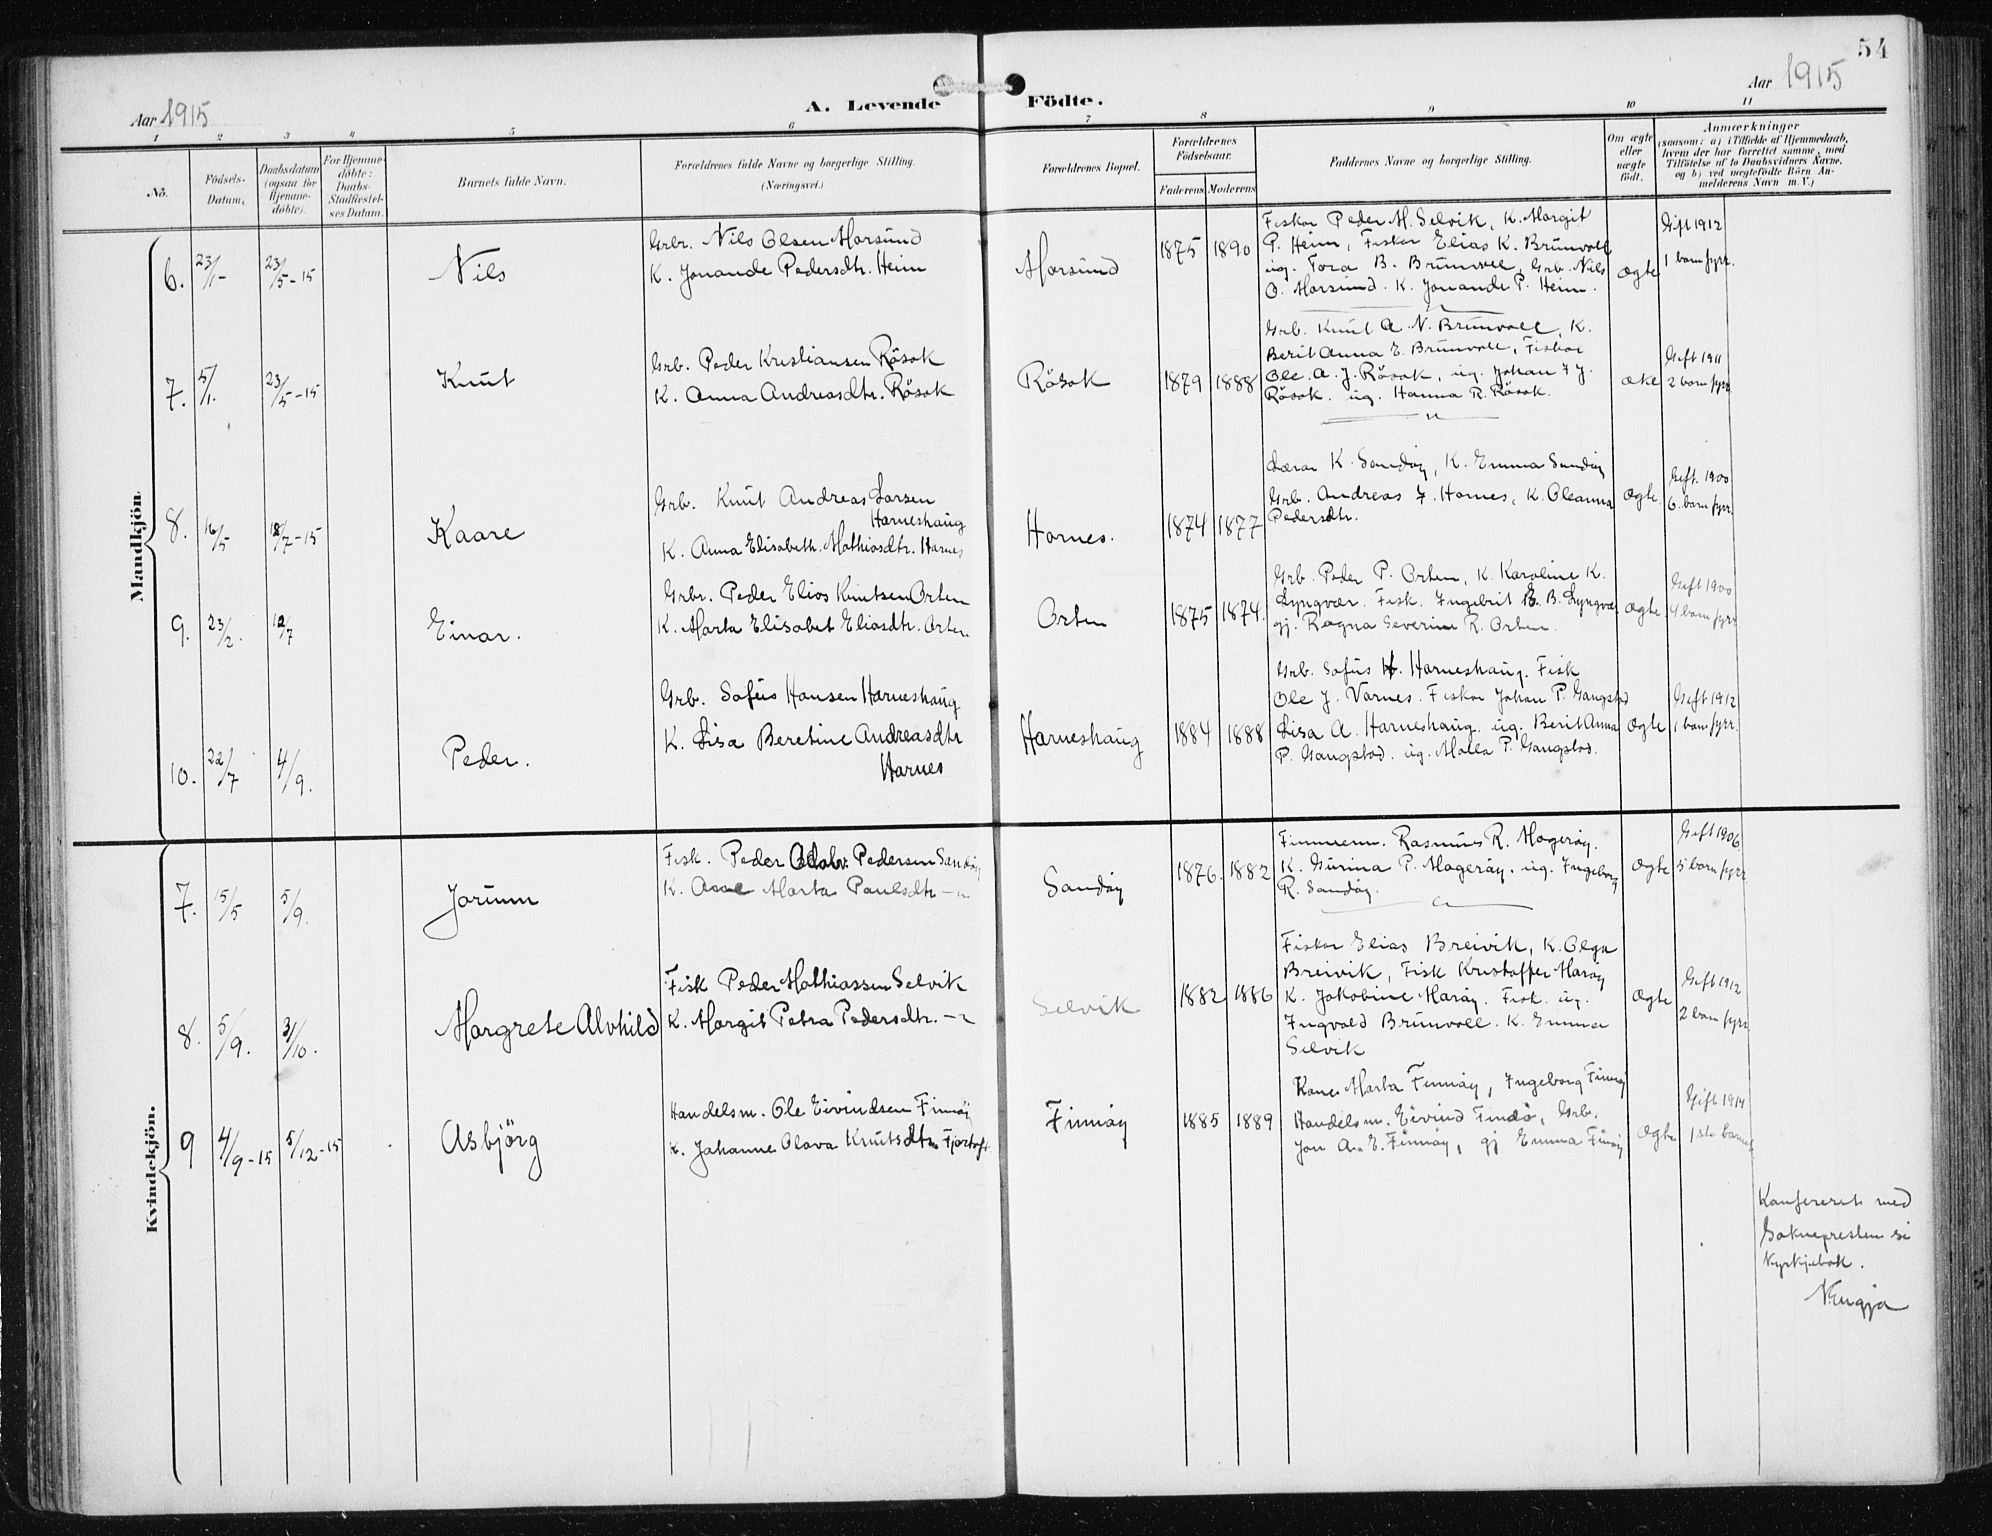 54
Aar 1915
A. Levende Födte.
Aar 1915
1 2 3 4 5 6 7 8 9 10 11
No.
Födsels-
Datum,
Daabsdatum
(ogsaa for
Hjemme-
döbte).
For Hjemme-
döbte:
Daabs-
Stadfæstel-
ses Datum.
Barnets fulde Navn.
Forældrenes fulde Navne og borgerlige Stilling.
(Næringsvei.)
Forældrenes Bopæl.
Forældrenes
Födselsaar.
Faderens Moderens
Faddernes Navne og borgerlige Stilling.
Om ægte
eller
uægte
født.
Anmærkninger
(saasom: a) i Tilfælde af Hjemmedaab,
hvem der har forrettet samme, med
Tilföielse af to Daabsvidners Navne.
og b) ved uægtefödte Börn An-
melderens Navn m. V.)
Mandkjön.
6. 23/1- 23/5-15 Nils
Grbr. Nils Olsen Morsund
K. Jonande Pedersdtr. Heim
Morsund 1875 1890
Fisker Peder M. Selvik, K. Margit
P. Heim, Fisker Elias K. Brunvoll
ug. Tora B. Brunvoll, Grb. Nils
O. Morsund. K. Jonande P. Heim.
ægte
Gift 1912
1 barn fyrr.
7. 5/1. 23/5-15 Knut
Grb. Peder Kristiansen Rösok
K. Anna Andreasdtr. Rösok
Rösok 1879 1888
Grb. Knut A. N. Brunvoll, K.
Berit Anna E. Brunvoll, Fisker
Ole. A. J. Rösok, ug. Johan F J.
Rösok. ug. Hanna R. Rösok.
Gift 1911
2 barn fyrr
8. 16/5 18/7-15 Kaare
Grb. Knut Andreas Larsen
Harneshaug
K. Anna Elisabeth. Mathiasdtr. Harnes
Harnes. 1874 1877
Lærar K. Sandöy, K. Emma Sandöy
Grb. Andreas F. Harnes, K. Oleanna
Pedersdtr.
ægte
Gift. 1900
6. barn fyrr.
9. 23/2. 18/7 Einar.
Grbr. Peder Elias Knutsen Orten
K. Marta Elisabet Eliasdtr. Orten
Orten 1875 1874.
Grb. Peder P. Orten, K. Karoline K.
Lyngvær. Fisk. Ingebrit B. B. Lyngvær
gj. Ragna Severine R. Orten.
ægte
Gift 1900
4 barn fyrr
10. 22/7 4/9. Peder.
Grb. Sofus Hansen Harneshaug
K. Lisa Beretine Andreasdtr
Harnes
Harneshaug 1884 1888
Grb. Sofus H. Harneshaug. Fisk
Ole J. Varnes. Fisker Johan P. Gangstad
Lisa A. Harneshaug. ug. Berit Anna
P. Gangstad. ug. Malla P. Gangstad.
ægte
Gift 1912
1 barn fyrr.
Kvindekjön.
7. 15/5 5/9. Jorunn
Fisk. Peder Pedersen Sandöy
K. Marta Paulsdtr -"-
Sandöy 1876. 1882
Rasmus R. Mageröy.
K. Gurina P. Mageröy. ug. Ingeborg
R. Sandöy.
ægte
Gift 1906
5 barn fyrr
8. 5/9. 3/10. Margrete Alvhild
Fisk Peder Mathiassen Selvik
K. Margit Petra Pedersdtr. -"-
Selvik 1882 1886
Fisker Elias Breivik, K. Olga
Breivik, Fisk Kristoffer Maröy
K. Jakobine Maröy. Fisk. ug.
Ingvald Brunvoll. K. Emma
Selvik
ægte
Gift 1912
2 barn fyrr
9 4/9-15 5/12-15 Asbjörg
Handelsm. Ole Eivindsen Finnöy
K. Johanne Olava Knutsdtr. Fjörtoft
Finnöy 1885 1889
Kone Marta Finnöy, Ingeborg Finnöy
Handelsm. Eivind Finnö, Grb.
Jon A. E. Finnöy, gj Emma Finnöy
ægte
Gift 1914
1ste barnet
Konfererat med
Soknepresten si
Kyrkjebok.